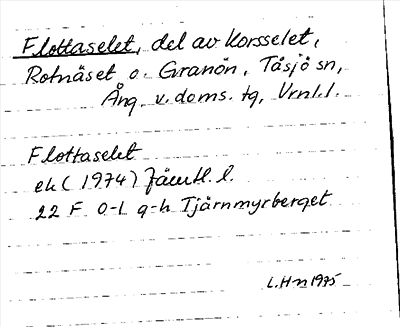 Flottaselet, del av Korsselet,
Rotnäset o. Granön, Tåsjö sn,
Ång. v. doms. tg, Vrnl. l.
Flottaselet
ek (1974) Jämtl. l.
22 F 0-1 g-h Tjärnmyrberget
L.H-n 1975